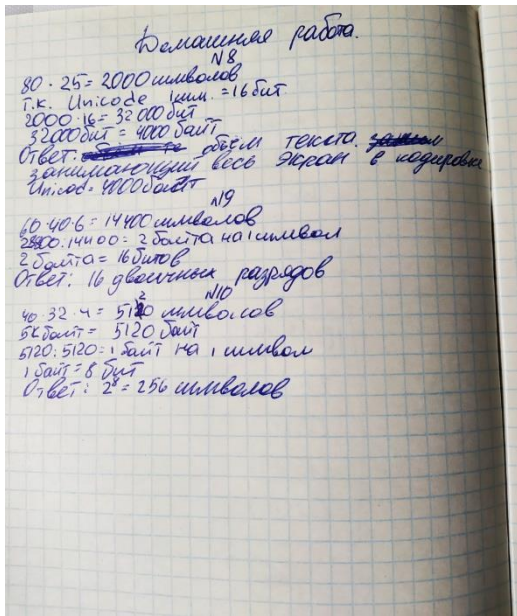 Домашняя работа.
№8
80 · 25 = 2000 символов
Т.к. Unicode 1 сим. = 16 бит.
2000 · 16 = 32 000 бит
32000 бит = 4000 байт
Ответ: объём текста
занимающий весь экран в кодировке
Unicod = 4000 байт
№9
60 · 40 · 6 = 14400 символов
28800 : 14400 = 2 байта на 1 символ
2 байта = 16 битов
Ответ: 16 двоичных разрядов
№10
40 · 32 · 4 = 5120 символов
5 Кбайт = 5120 байт
5120 : 5120 = 1 байт на 1 символ
1 байт = 8 бит
Ответ: 2⁸ = 256 символов